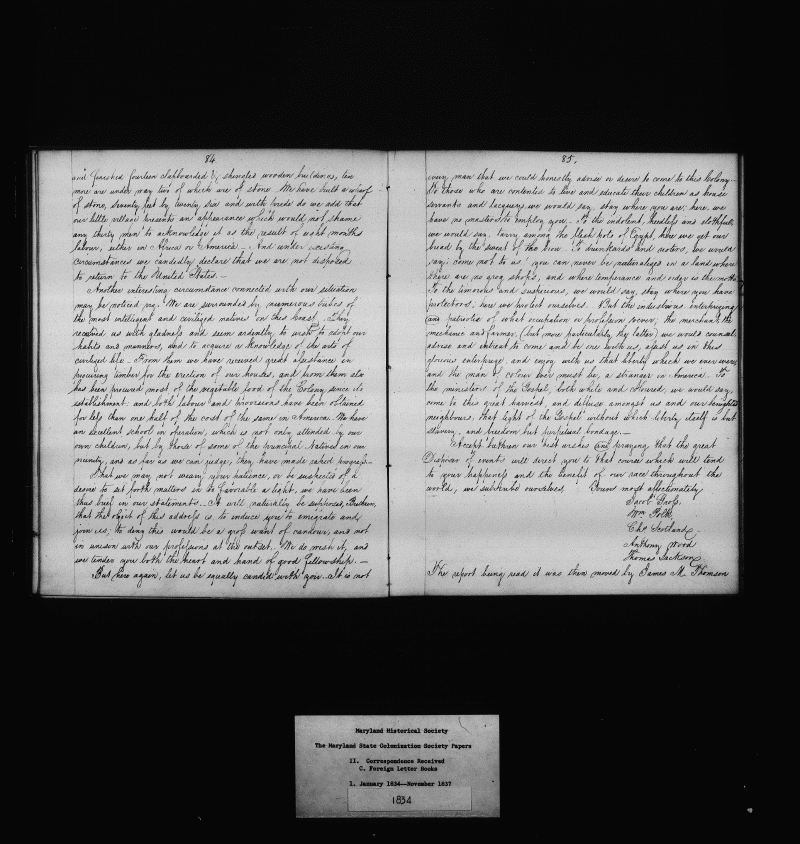 84
and finished fourteen clapboarded & shingled wooden buildings, ten
more are under way two of which are of stone. We have built a wharf
of stone, seventy feet by twenty six and with pride do we add that
our little village presents an appearance which would not shame
any thirty men to acknowledge it as the result of eight months
labour, either in Africa or America – And under existing
circumstances we candidly declare that we are not disposed
to return to the United States. –
Another interesting circumstance connected with our situation
may be noticed viz. We are surrounded by numerous tribes of
the most intelligent and civilized natives on this coast. They
received us with gladness and seem ardently to wish to adopt our
habits and manners, and to acquire a knowledge of the arts of
civilized life – From them we have received great assistance in
procuring timber for the erection of our houses, and from them also
has been procured most of the vegetable food of the Colony since its
establishment and both labour and provisions have been obtained
for less than one half of the cost of the same in America. We have
an excellent school in operation, which is not only attended by our
own children, but by those of some of the principal Natives in our
vicinity, and as far as we can judge, they have made rapid progress –
That we may not weary your patience, or be suspected of a
desire to set forth matters in to favorable a light, we have been
thus brief in our statements – It will naturally be supposed, Brethren,
that the object of this address is to induce you to emigrate and
join us; to deny this would be a gross want of candour, and not
in unison with our professions at the outset. We do wish it, and
we tender you both the heart and hand of good fellowship. –
But here again, let us be equally candid with you – It is not
85.
every man that we could honestly advise or desire to come to this Colony.
To those who are contented to live and educate their children as house
servants and lacqueys, we would say, stay where you are; here, we
have no masters to employ you. To the indolent, heedless and slothful
we would say, tarry among the flesh pots of Egypt, here we get our
bread by the sweat of the brow. To drunkards and rioters, we would
say, come not to us! you can never be naturalized in a land where
there are no grog shops, and where temperance and order is the motto
To the timorous and suspicious, we would say, stay where you have
protectors, here we protect ourselves. But the industrious enterprizing
and patriotic of what occupation or profession soever, the merchant, the
mechanic and farmer, (but more particularly the latter) we would counsel
advise and intreat to come and be one with us, assist us in this
glorious enterprize and enjoy with us that liberty which we ever were
and the man of colour ever must be, a stranger in America. To
the ministers of the Gospel, both white and Coloured, we would say,
come to this great harvest, and diffuse amongst us and our benighted
neighbours, that light of the Gospel without which liberty itself is but
slavery, and freedom but perpetual bondage. –
Accept brethren our best wishes and praying, that the great
Disposer of events will direct you to that course which will tend
to your happiness and the benefit of our race throughout the
world, we subscribe ourselves Yours most affectionately
Jacob Gross.
Wm. Polk
Chs. Scotland
Anthony Wood
Thomas Jackson
The report being read it was then moved by James M. Thomson
Maryland Historical Society
The Maryland State Colonization Society Papers
II. Correspondence Received
C. Foreign Letter Books
1. January 1834--November 1837
1834